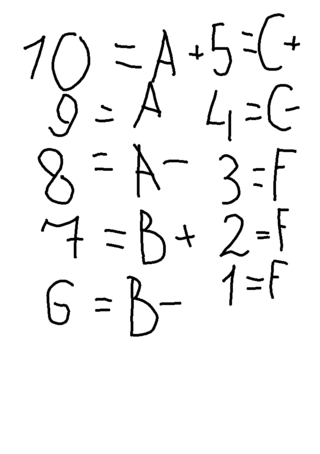 10 = A+ 5 = C+
9 = A 4 = C-
8 = A- 3 = F
7 = B+ 2 = F
6 = B- 1 = F